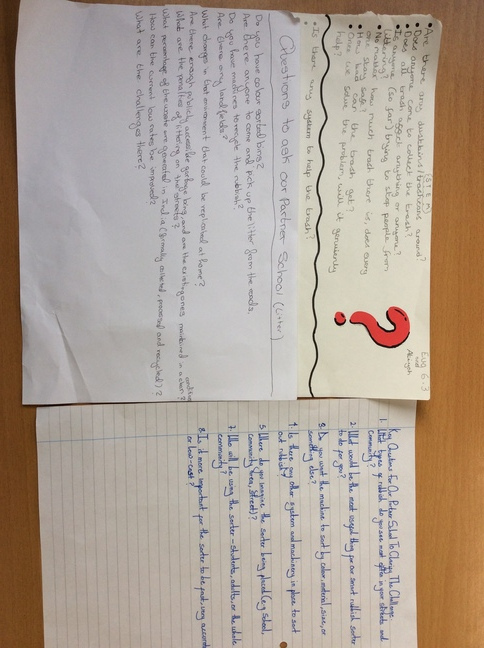 Eva 6.3
and
Alaiyah
• Are there any dustbins/trashcans around?
• Does anyone come to collect the trash?
• Does all trash affect anything or anyone?
• Is anyone (so far) trying to stop people from
littering?
• No matter how much trash there is, does every
one stay safe?
• How bad can the trash get?
• Once we solve the problem, will it genuinely
help?
• Is there any system to help the trash?
Questions to ask our Partner School (Litter)
Do you have colour sorted bins?
Are there anyone to come and pick up the litter from the roads.
Do you have machines to recycle the rubbish?
Are there any landfields?
What changes in that environment that could be replicated at home?
Are there enough publicly accessible garbage bins, and are the existing ones maintained
What are the penalties of littering on the streets?
What percentage of the waste are generated in India (formally collected, processed and recycled)?
How can the current low rates be improved?
What are the challenges there?
Key Questions For Our Partner School To Clarify The Challenge
1. What types of rubbish do you see most often in your streets and
community?
2. What would be the most useful thing for our smart rubbish sorter
to do for you?
3. Do you want the machine to sort by color, material, size, or
something else?
4. Is there any other system and machinery in place to sort
out rubbish?
5. Where do you imagine the sorter being placed (e.g School,
community area, street)?
7. Who will be using the sorter – students, adults, or the whole
community?
8. Is it more important for the sorter to be fast, very accurat
or low-cost?